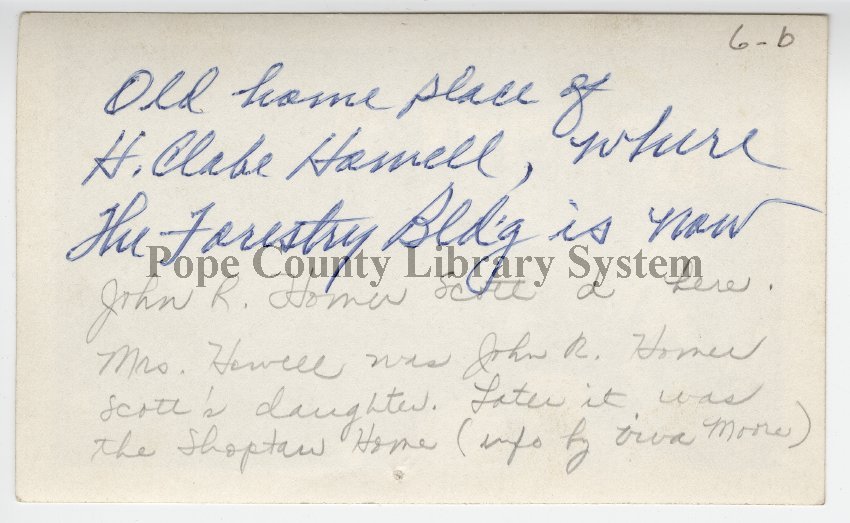 6-b
Old home place of
H. Clabe Howell, where
the Forestry Bld'g is now
Pope County Library System
John R. Homer Scott d here.
Mrs. Howell was John R. Homer
Scott's daughter. Later it was
the Shoptaw Home (info by Viva Moore)